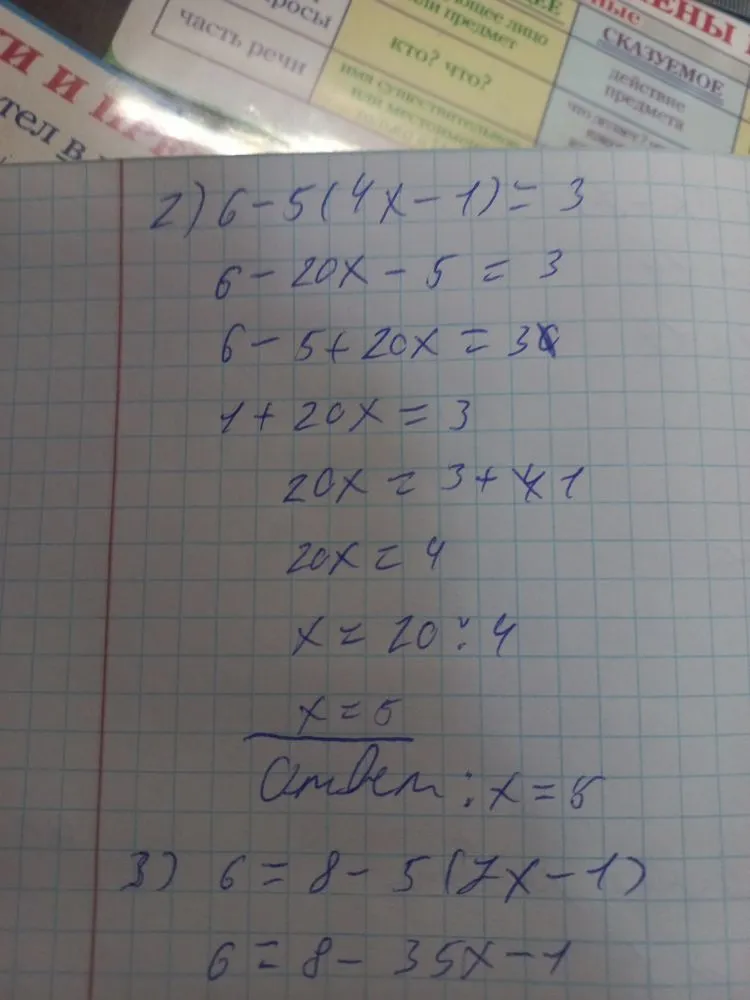 просы
часть речи
ющее лицо
или предмет
кто? что?
имя существительное
или местоимение
ные
ЧЛЕНЫ
СКАЗУЕМОЕ
действие
предмета
что делает?
И И
тел в
2) 6 - 5(4x - 1) = 3
6 - 20x - 5 = 3
6 - 5 + 20x = 3
1 + 20x = 3
20x = 3 + 1
20x = 4
x = 20 : 4
x = 5
Ответ : x = 5
3) 6 = 8 - 5(7x - 1)
6 = 8 - 35x - 1